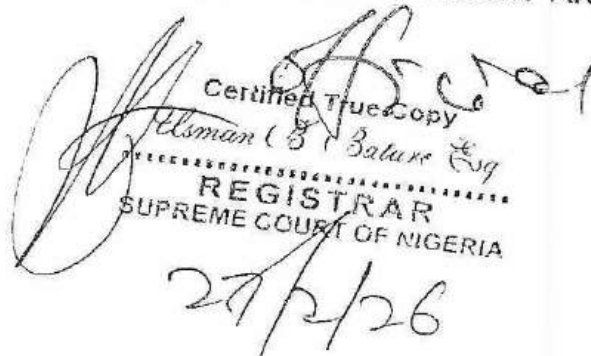 Certified True Copy
Usman B. Bature Esq
REGISTRAR
SUPREME COURT OF NIGERIA
27/2/26